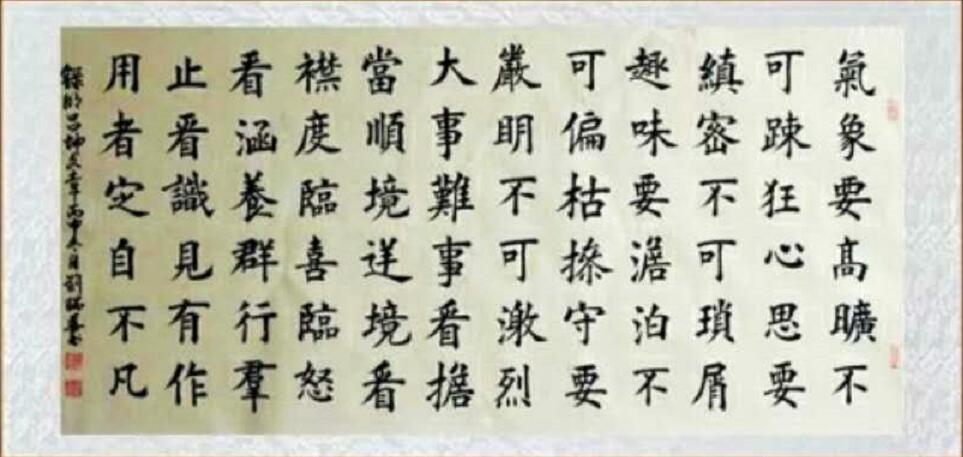 氣象要高曠不
可踈狂心思要
縝密不可瑣屑
趣味要澹泊不
可偏枯操守要
嚴明不可激烈
大事難事看擔
當順境逆境看
襟度臨喜臨怒
看涵養群行羣
止看識見有作
用者定自不凡
錄明呂坤文章丙申冬月劉